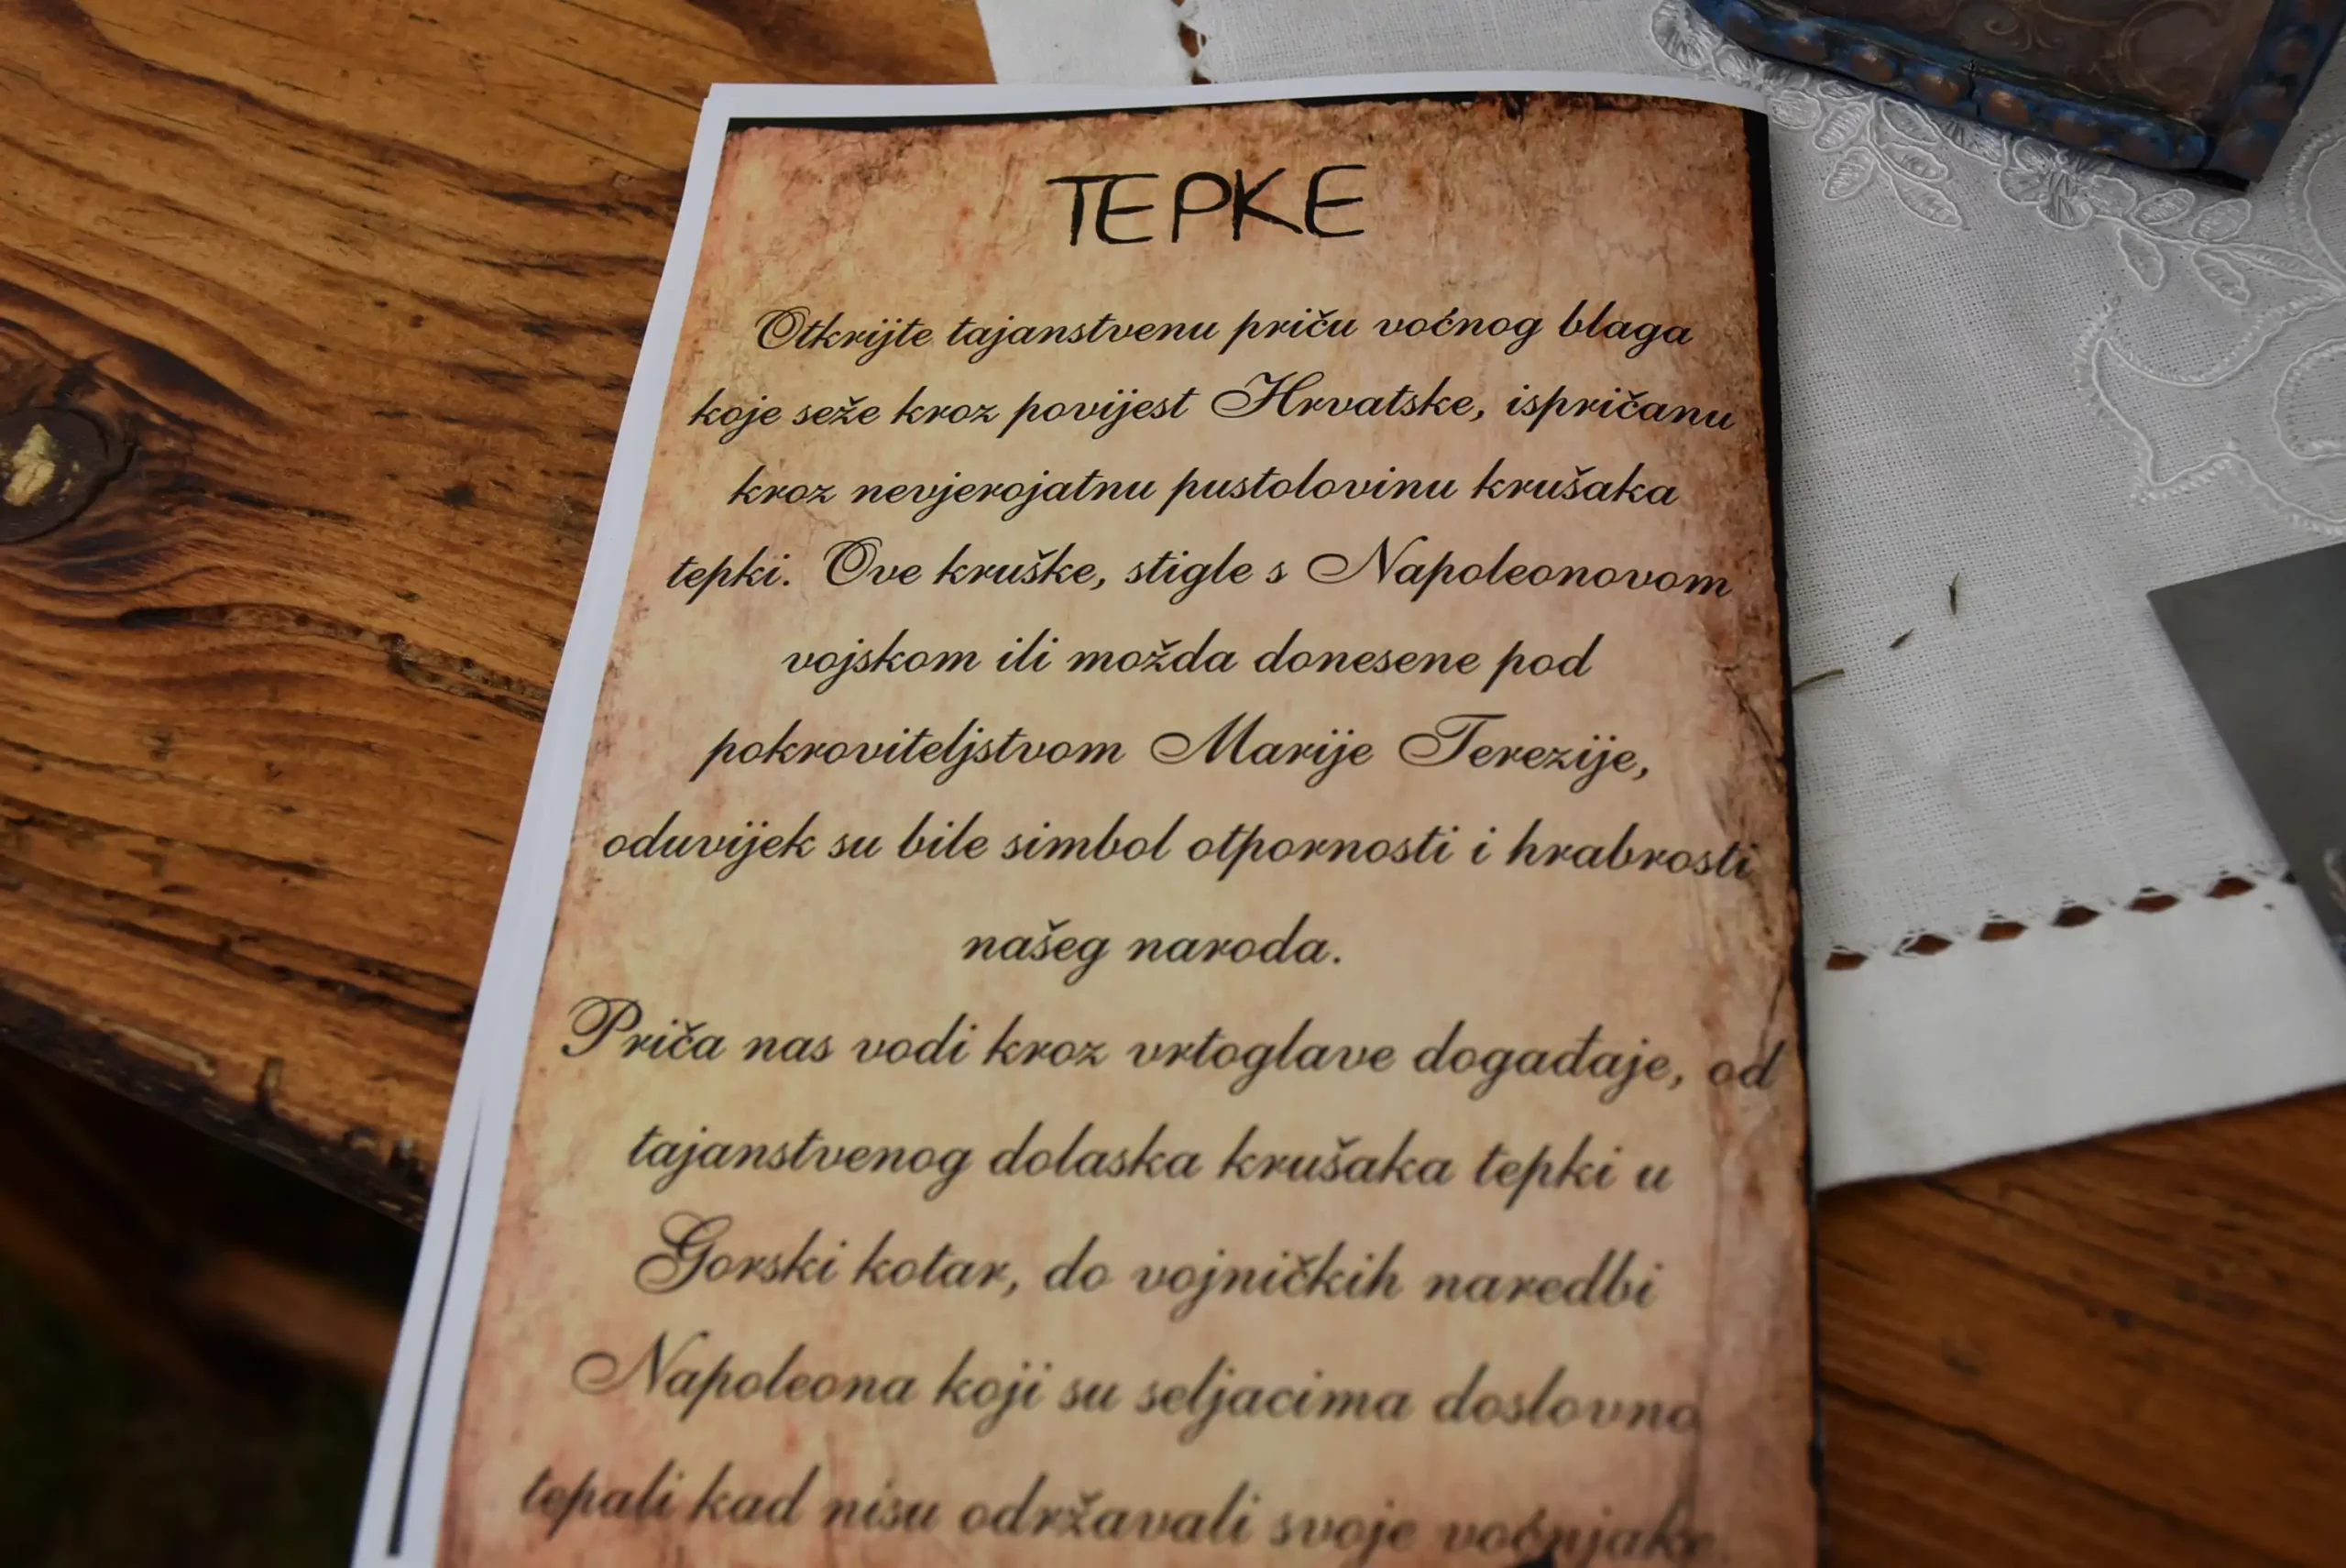 TEPKE
Otkrijte tajanstvenu priču voćnog blaga
koje seže kroz povijest Hrvatske, ispričanu
kroz nevjerojatnu pustolovinu krušaka
tepki. Ove kruške, stigle s Napoleonovom
vojskom ili možda donesene pod
pokroviteljstvom Marije Terezije,
oduvijek su bile simbol otpornosti i hrabrosti
našeg naroda.
Priča nas vodi kroz vrtoglave događaje, od
tajanstvenog dolaska krušaka tepki u
Gorski kotar, do vojničkih naredbi
Napoleona koji su seljacima doslovno
tepali kad nisu održavali svoje voćnjake